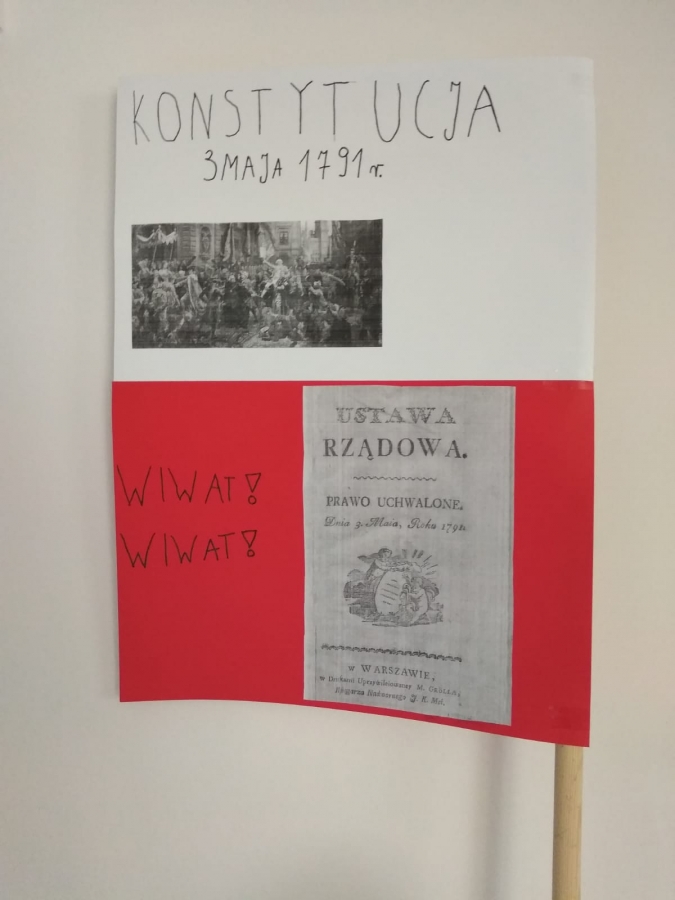 KONSTYTUCJA
3 MAJA 1791 r.
WIWAT!
WIWAT!
USTAWA
RZĄDOWA.
PRAWO UCHWALONE.
Dnia 3. Maia, Roku 1791.
w WARSZAWIE,
w Drukarni Uprzywileiowaney M. GRÖLLA,
Księgarza Nadwornego J. K. Mci.